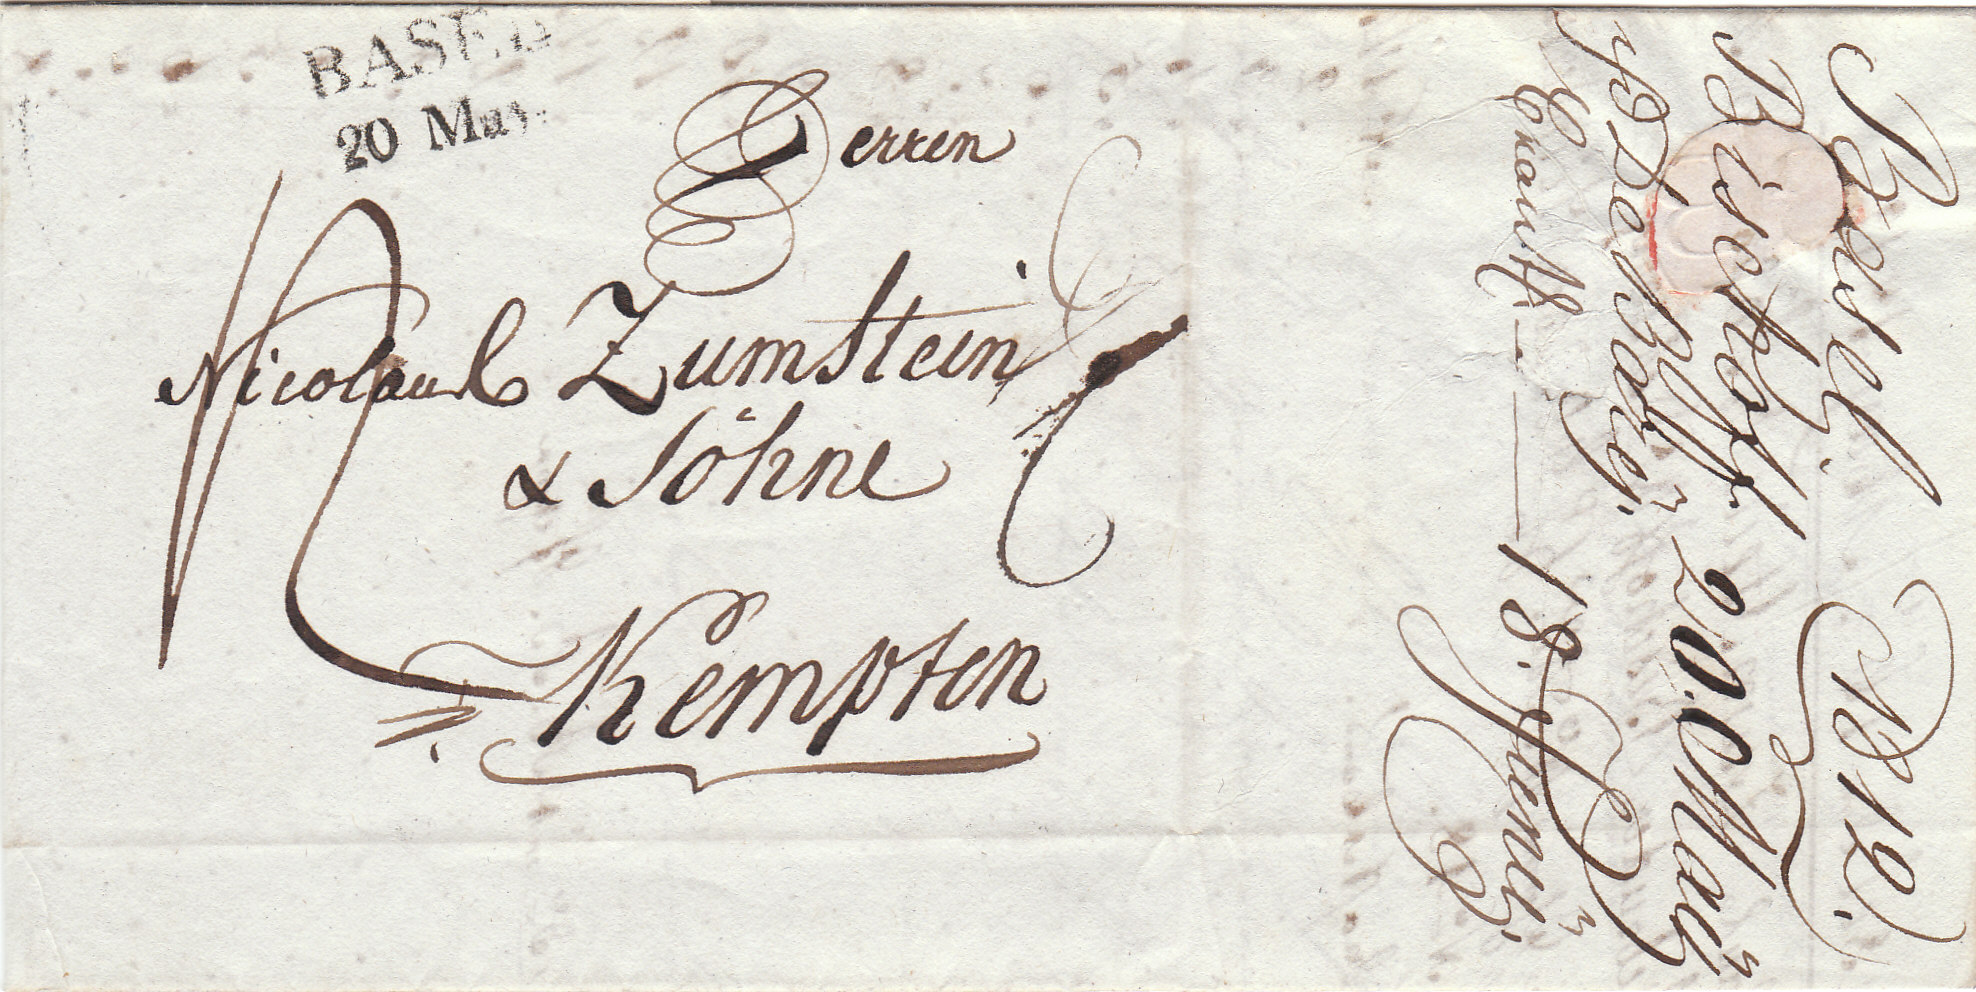 BASEL
20 May.
Herren
Nicolaus Zumstein
& Söhne
Kempten
Basel. 1812.
Bischoff 20. Maÿ
18. Juenÿ